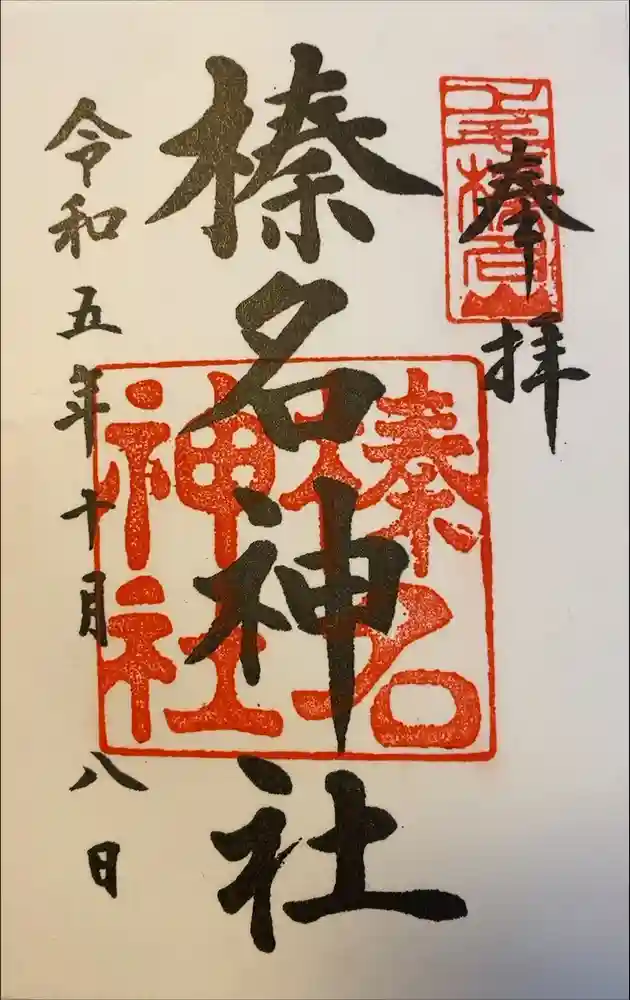 奉拝
榛名神社
榛名
神社
令和五年十月八日